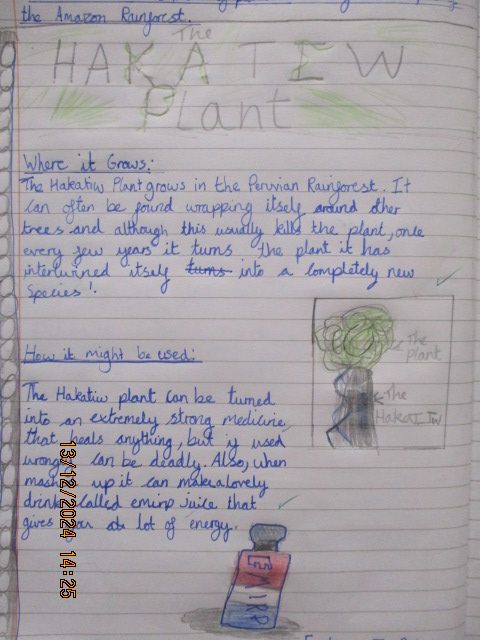 the Amazon Rainforest.
The
HAKATEW
Plant
Where it Grows:
The Hakatiw Plant grows in the Peruvian Rainforest. It
can often be found wrapping itself around other
trees and although this usually kills the plant, once
every few years it turns the plant it has
intertwined itself turns into a completely new
species!
The
plant
The
HakaTIW
How it might be used:
The Hakatiw plant can be turned
into an extremely strong medicine,
that heals anything, but if used
can be deadly. Also, when
up it can make a lovely
drink called emirp juice that
gives a lot of energy.
EMIRP
13/12/2024 14:25